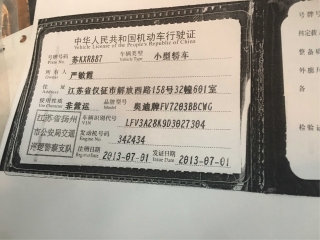 中华人民共和国机动车行驶证
Vehicle License of the People's Republic of China
号牌号码 苏KXR887 车辆类型 小型轿车
Plate No. Vehicle Type
所有人 严敏霞
Owner
住址 江苏省仪征市解放西路158号32幢601室
Address
使用性质 非营运 品牌型号 奥迪牌FV7203BBCWG
Use Character Model
江苏省扬州市公安局交通巡逻警察支队
车辆识别代号 LFV3A28K9D3027304
VIN
发动机号码 342434
Engine No.
注册日期 2013-07-01 发证日期 2013-07-01
Register Date Issue Date
号牌号
核定载
整备
外廓
备
检验